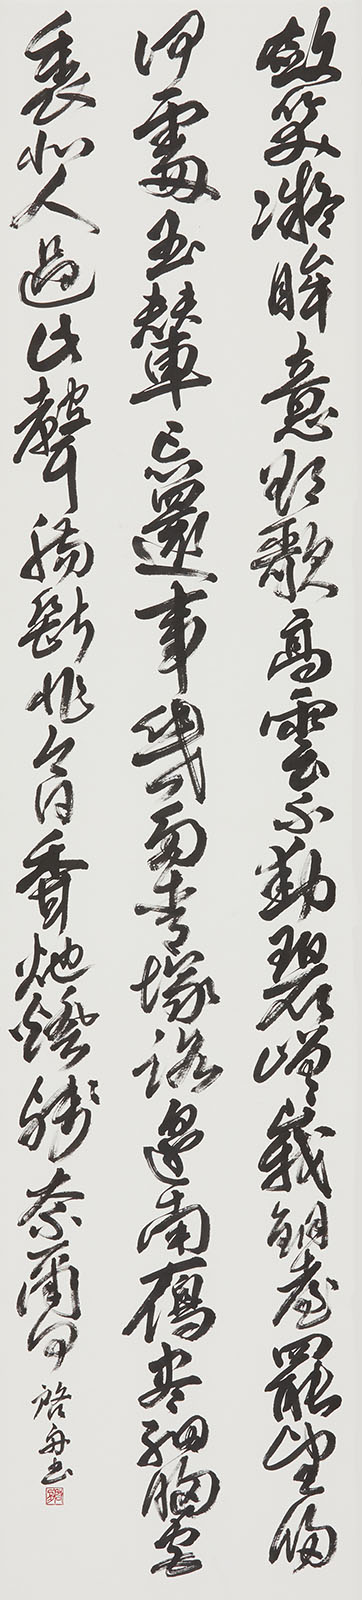 斂笑凝眸意欲歌高雲不動碧嵯峨銅臺罷望歸
何處玉輦忘還事幾多青塚路邊南雁盡細腰宮
裏北人過此聲腸斷非今日香灺燈殘奈爾何
書